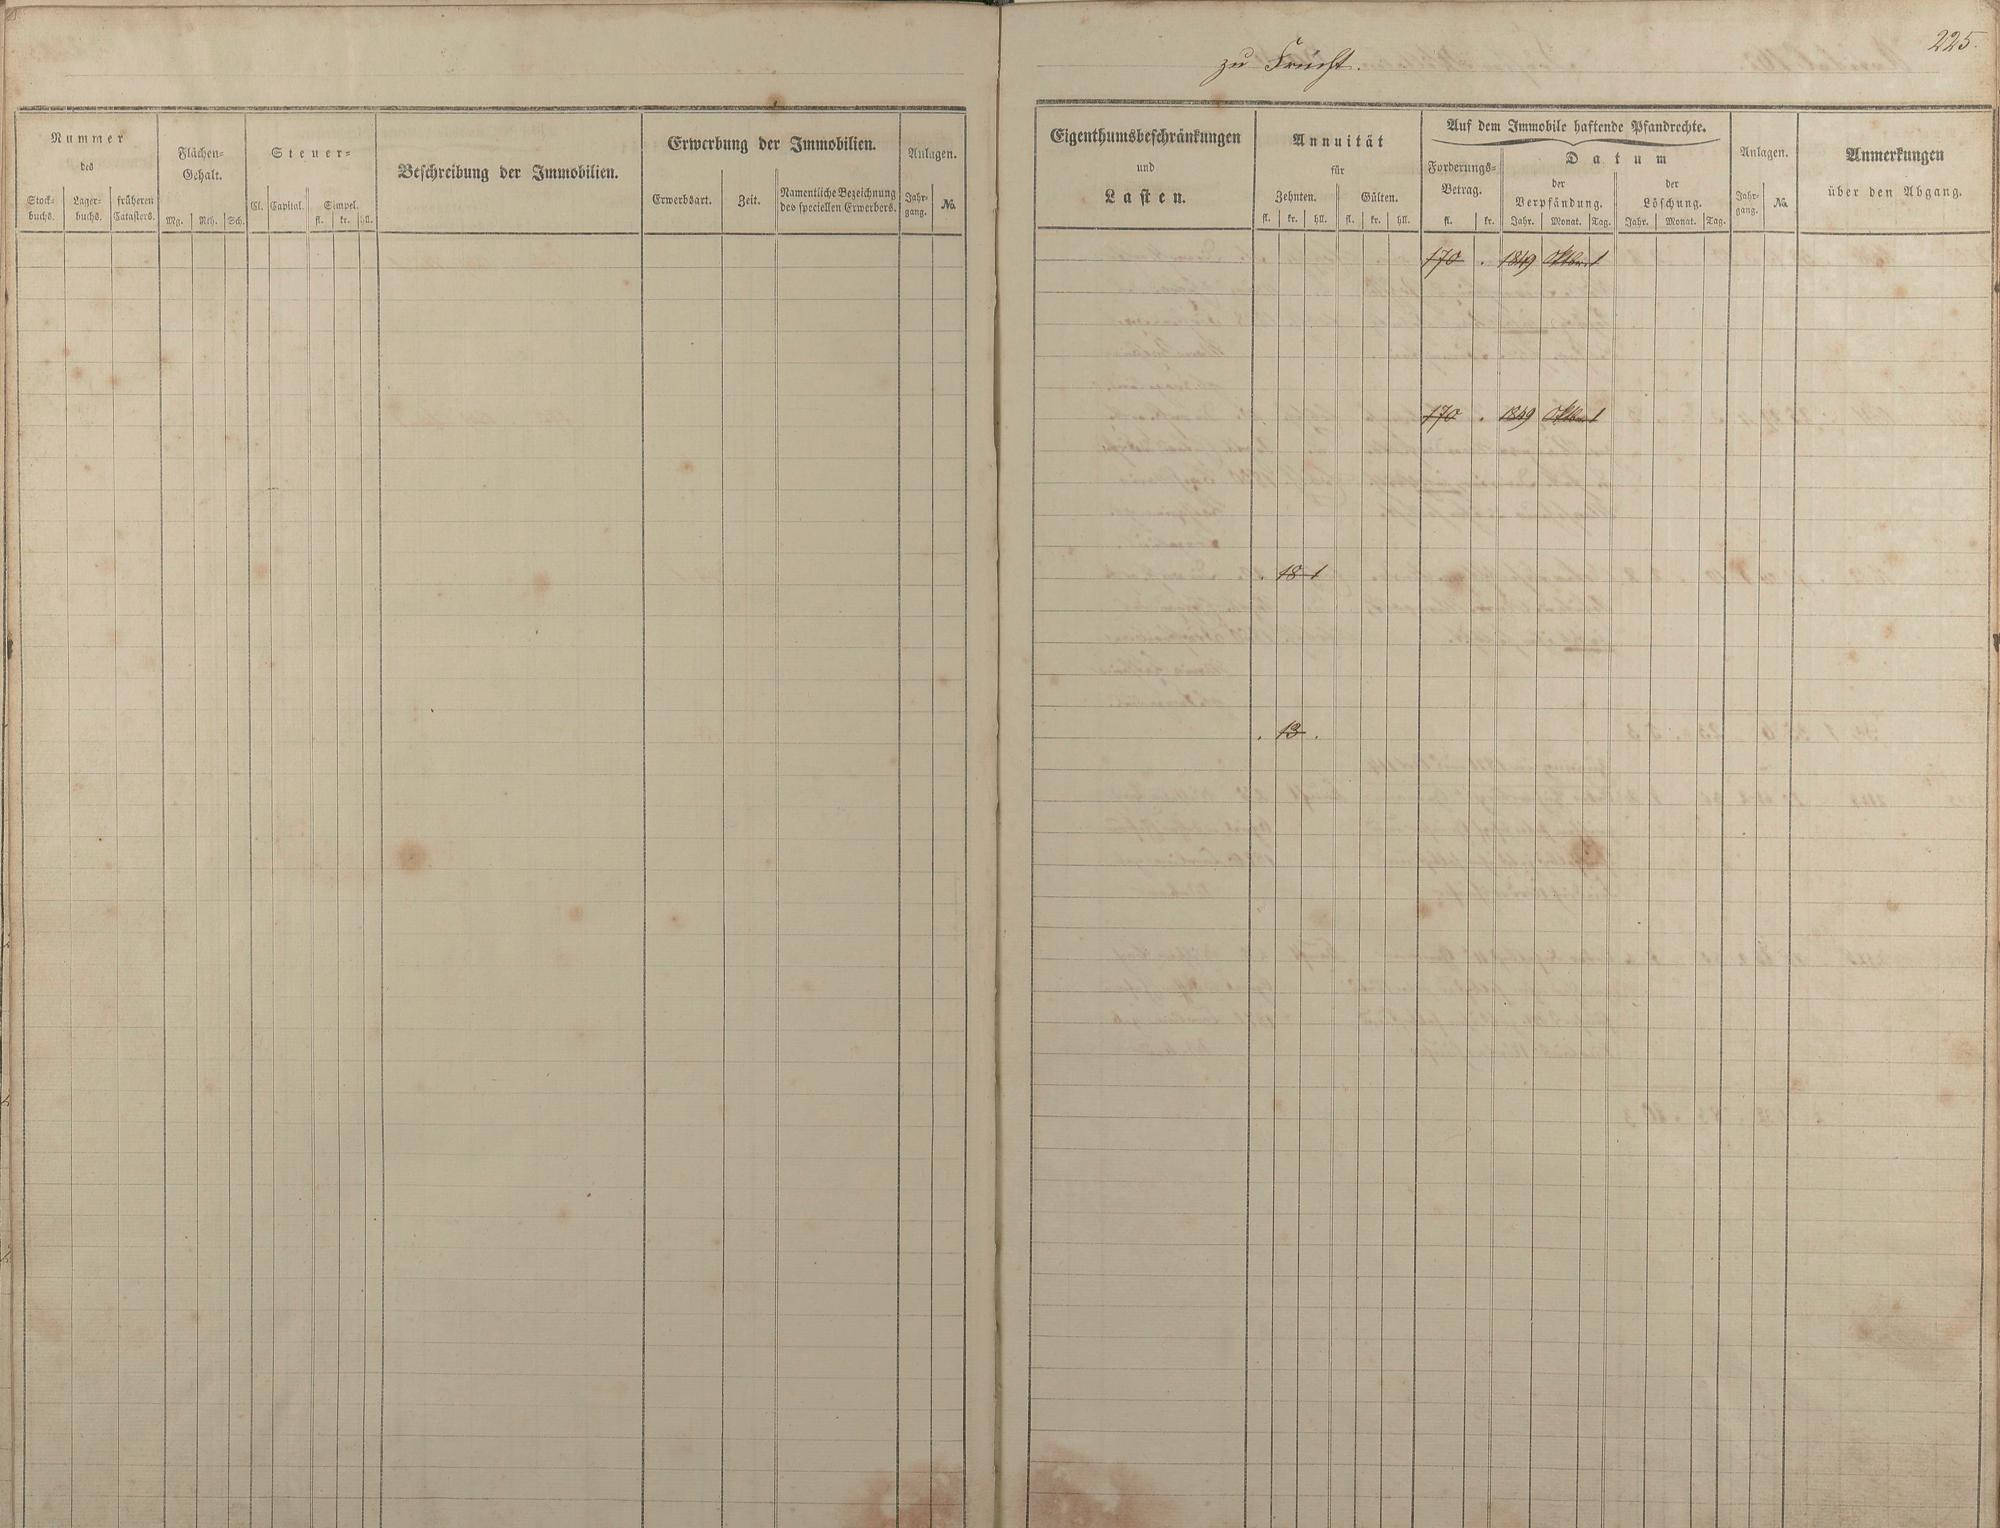 225.
zu Frücht.
Nummer
des
Stock-
buchs.
Lager-
buchs.
früheren
Catasters.
Flächen-
Gehalt.
Mg. Rth. Sch.
Steuer-
Cl. Capital. Simpel.
fl. kr. hll.
Beschreibung der Immobilien.
Erwerbung der Immobilien.
Erwerbsart. Zeit. Namentliche Bezeichnung
des speciellen Erwerbers.
Anlagen.
Jahr-
gang. No.
Eigenthumsbeschränkungen
und
Lasten.
Annuität
für
Zehnten. Gülten.
fl. kr. hll. fl. kr. hll.
Auf dem Immobile haftende Pfandrechte.
Forderungs-
Betrag.
fl. kr.
Datum
der
Verpfändung.
Jahr. Monat. Tag.
der
Löschung.
Jahr. Monat. Tag.
Anlagen.
Jahr-
gang. No.
Anmerkungen
über den Abgang.
170 . 1849 Oktbr. 1
170 . 1849 Oktbr. 1
. 18 1
. 13 .